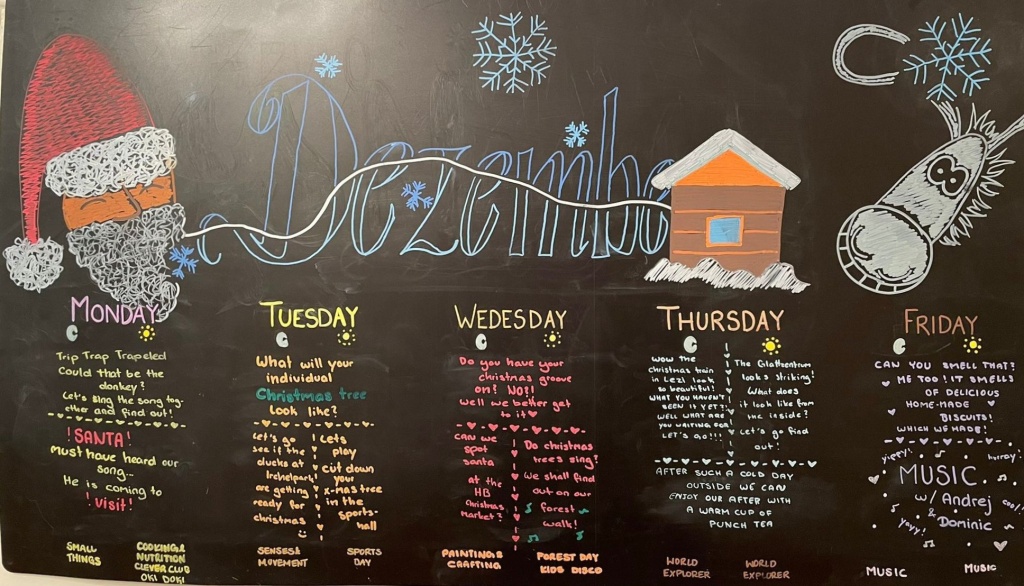 Dezember
MONDAY
Trip Trap Trapeled
Could that be the
donkey?
Let's sing the song tog-
ether and find out!
!SANTA!
must have heard our
song...
He is coming to
!visit!
SMALL
THINGS
COOKING &
NUTRITION
CLEVER CLUB
OKI DOKI
TUESDAY
What will your
individual
Christmas tree
look like?
Let's go
see if the
ducks at
Irchelpark
are getting
ready for
christmas
Lets
play
cut down
your
x-mas tree
in the
sports-
hall
SENSES &
MOVEMENT
SPORTS
DAY
WEDESDAY
Do you have your
christmas groove
on? No!!
Well we better get
to it
can we
spot
santa
at the
HB
Christmas
market?
Do christmas
trees sing?
We shall find
out on our
forest
walk!
PAINTING &
CRAFTING
FOREST DAY
KIDS DISCO
THURSDAY
WOW the
christmas train
in Lezl look
so beautiful!
WHAT YOU HAVEN'T
SEEN IT YET?!
WELL WHAT ARE
YOU WAITING FOR
LET'S GO!!!
The Glattzentrum
looks striking!
What does
it look like from
the inside?
Let's go find
out!
AFTER SUCH A COLD DAY
OUTSIDE WE CAN
ENJOY OUR AFTER WITH
A WARM CUP OF
PUNCH TEA
WORLD
EXPLORER
WORLD
EXPLORER
FRIDAY
CAN YOU SMELL THAT?
ME TOO! IT SMELLS
OF DELICIOUS
HOME-MADE
BISCUITS!
WHICH WE MADE!
yippy!
hurray!
MUSIC
w/ Andrej
cool!
& Dominic
yayy!
MUSIC
MUSIC